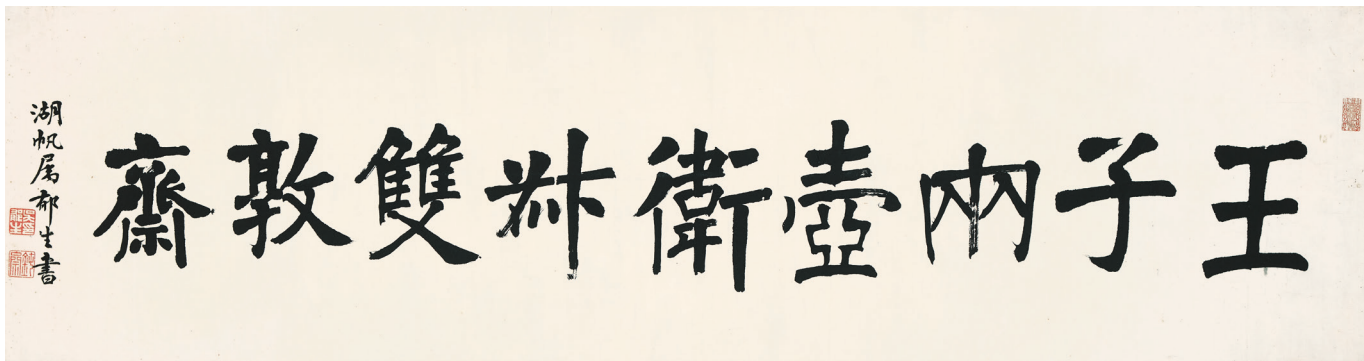 王子兩壺衛雙敦齋
湖帆属郁生書